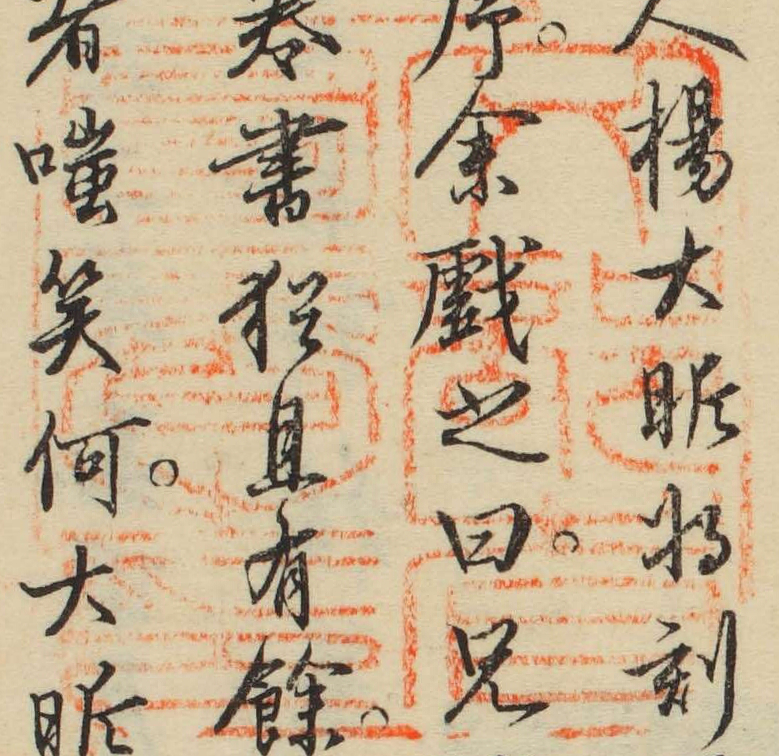 人楊大眽将刻
序。余戲之曰。兄
卷書猶且有餘。
者嗤笑何。大眽